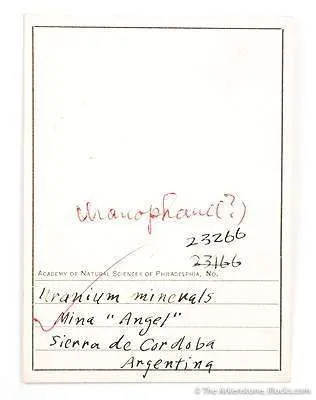 Uranophane(?)
23266
23166
ACADEMY OF NATURAL SCIENCES OF PHILADELPHIA, NO.
Uranium minerals
Mina "Angel"
Sierra de Cordoba
Argentina
© The Arkenstone, iRocks.com